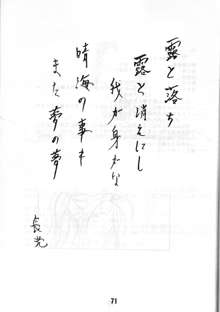 露と落ち
露と消えにし
我が身かな
晴海の事も
また夢の夢
長党
71